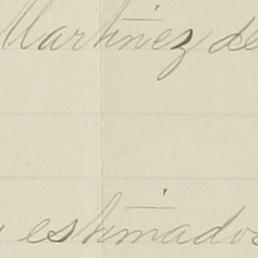 Martinez de
estimados